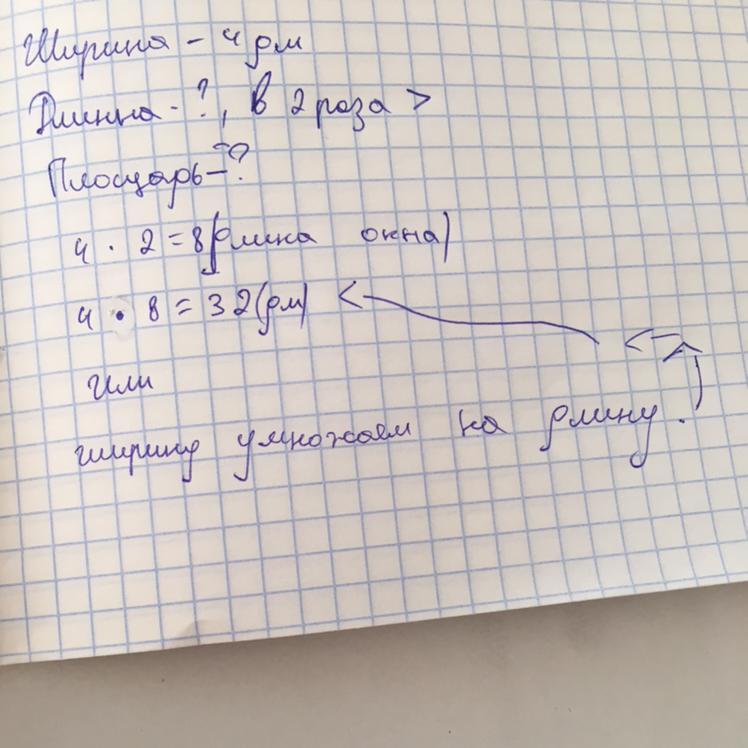 Ширина - 4 дм
Длинна - ?, в 2 раза >
Площадь - ?
4 · 2 = 8 (длина окна)
4 · 8 = 32 (дм)
или
ширину умножаем на длину.